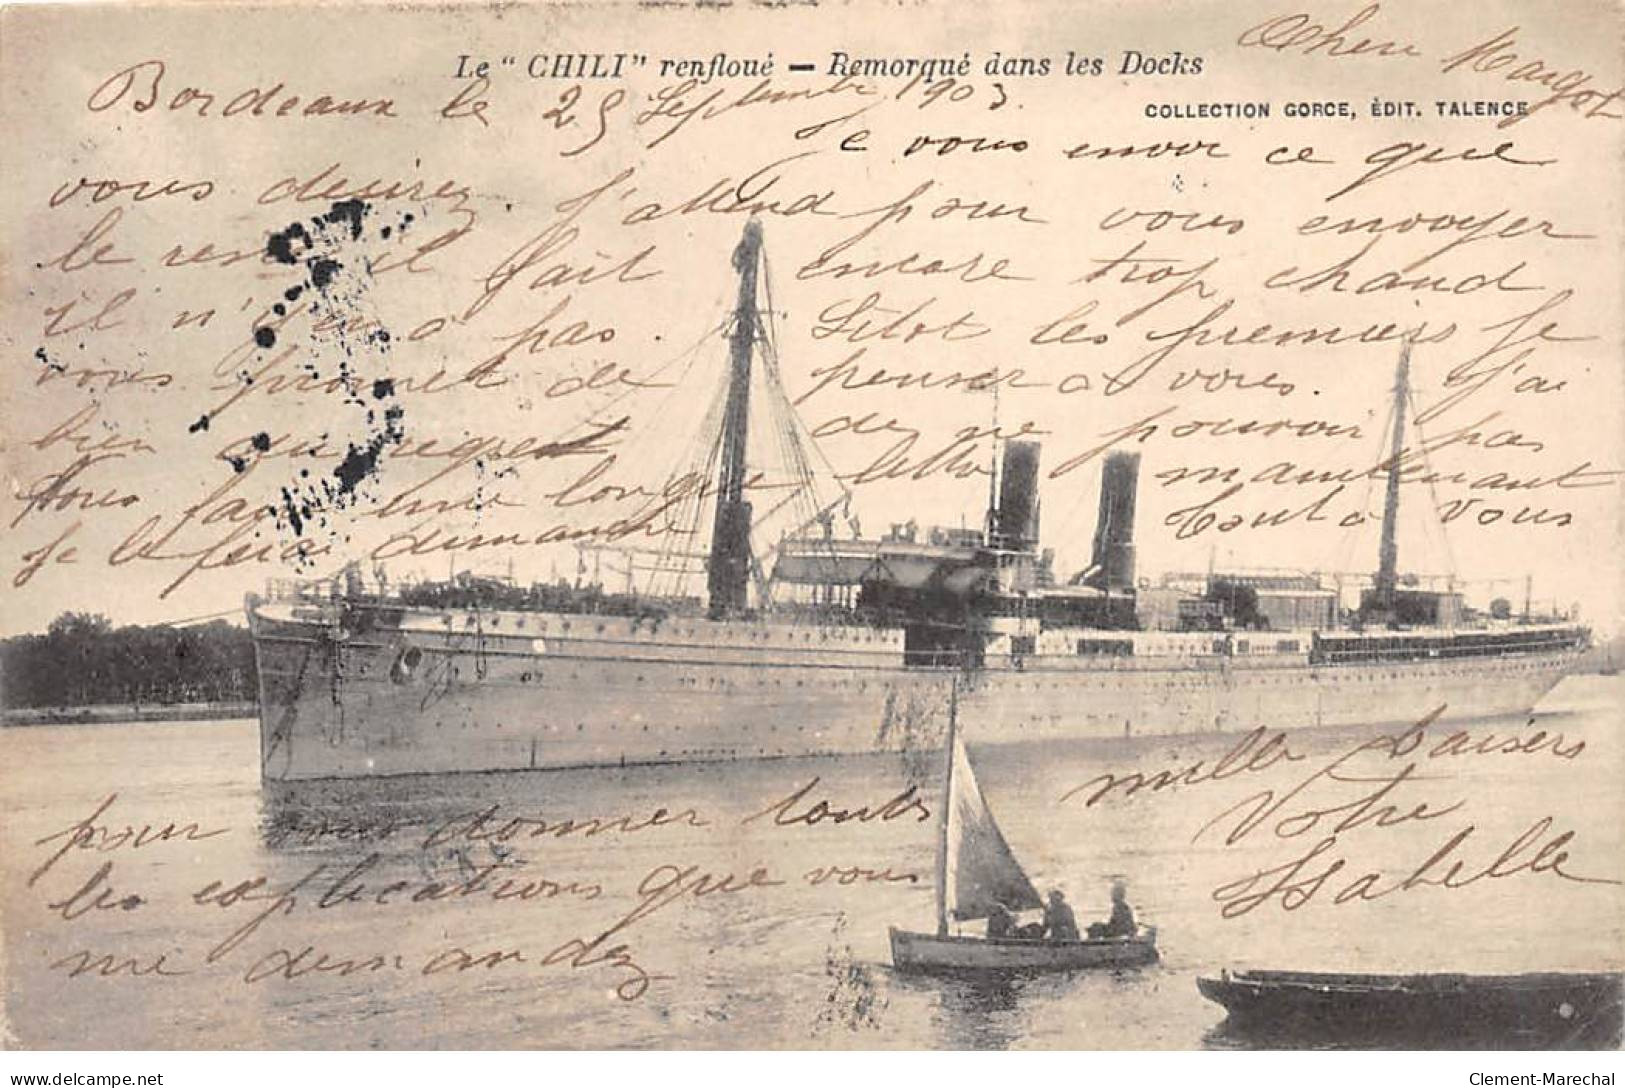 Le "CHILI" renfloué — Remorqué dans les Docks
COLLECTION GORCE, ÉDIT. TALENCE
Cher Margot
Bordeaux le 25 Septembre 1903.
Je vous envoir ce que
vous desirez. J'attend pour vous envoyer
le il fait encore trop chaud
il n'y en a pas. Sitot les premiers Je
vous promet de penser a vous. J'ai
bien du regret de ne pouvoir pas
vous faire une longue lettre maintenant
je le ferai dimanche Tout a vous
pour vous donner touts
les explications que vous
me demandez
mille baisers
Votre
Isabelle
Clement-Marechal
delcampe.net